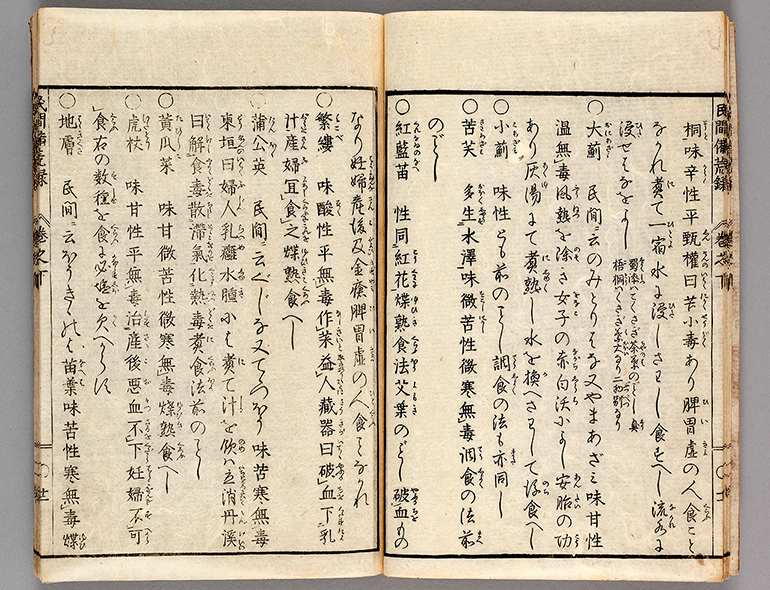 民間備荒録 巻之下
桐味辛性平甄權曰苦小毒あり脾胃虚の人食こと
なかれ煮て一宿水に浸しさわし食すへし流水に
浸せはなをよし
○大薊 民間ニ云のみとりはな又やまあざミ味甘性
温無毒風熱を除き女子の赤白沃小よし安胎の功
あり灰湯にて煮熟し水を換へさわして後食へし
○小薊 味性とも前のことし調食の法も亦同し
○苦芺 多生水澤味微苦性微寒無毒調食の法前
のことし
○紅藍苗 性同紅花煠熟食法艾葉のことし破血もの
なり妊婦産後及金瘡脾胃虚の人食ことなかれ
○繁縷 味酸性平無毒作菜益人藏器曰破血下乳
汁産婦宜食之煠熟食へし
○蒲公英 民間ニ云ぐじな又てゝつほう 味苦寒無毒
東垣曰婦人乳癰水腫には煮て汁を飲ハ立消丹溪
曰解食毒散滯氣化熱毒煮食法前のことし
○黄瓜菜 味甘微苦性微寒無毒煠熟食へし
○虎杖 味甘性平無毒治産後悪血不下妊婦不可
食右の数種を食に必塩を欠へからす
○地膚 民間ニ云はうきゝのは 苗葉味苦性寒無毒煠
民間備荒録 巻之下